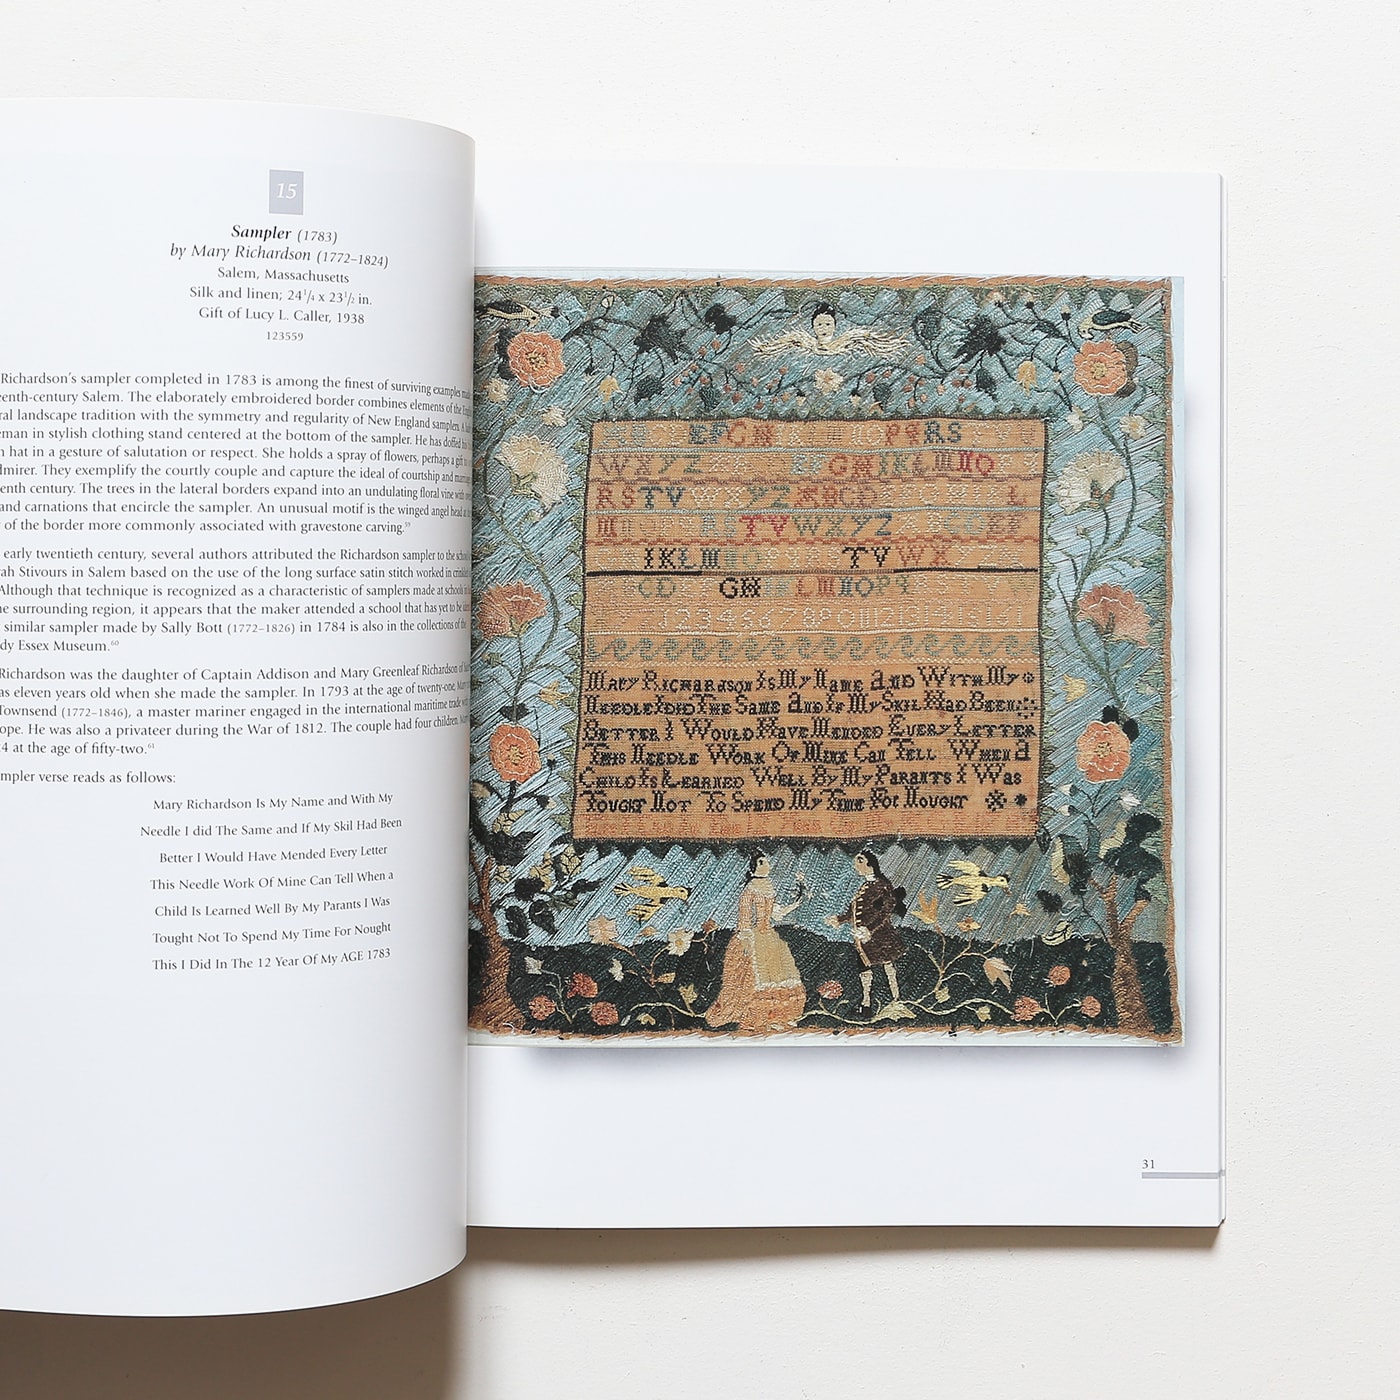 15
Sampler (1783)
by Mary Richardson (1772–1824)
Salem, Massachusetts
Silk and linen; 24 1/4 x 23 1/2 in.
Gift of Lucy L. Caller, 1938
123559
Richardson's sampler completed in 1783 is among the finest of surviving examples
eenth-century Salem. The elaborately embroidered border combines elements of the
ral landscape tradition with the symmetry and regularity of New England samplers. A
eman in stylish clothing stand centered at the bottom of the sampler. He has doffed
n hat in a gesture of salutation or respect. She holds a spray of flowers, perhaps a gift
dmirer. They exemplify the courtly couple and capture the ideal of courtship and
enth century. The trees in the lateral borders expand into an undulating floral vine with
and carnations that encircle the sampler. An unusual motif is the winged angel head
of the border more commonly associated with gravestone carving.59
early twentieth century, several authors attributed the Richardson sampler to the
ah Stivours in Salem based on the use of the long surface satin stitch worked in
Although that technique is recognized as a characteristic of samplers made at schools
he surrounding region, it appears that the maker attended a school that has yet to be
similar sampler made by Sally Bott (1772–1826) in 1784 is also in the collections of the
dy Essex Museum.60
Richardson was the daughter of Captain Addison and Mary Greenleaf Richardson of
as eleven years old when she made the sampler. In 1793 at the age of twenty-one,
Townsend (1772–1846), a master mariner engaged in the international maritime trade
ope. He was also a privateer during the War of 1812. The couple had four children.
4 at the age of fifty-two.61
mpler verse reads as follows:
Mary Richardson Is My Name and With My
Needle I did The Same and If My Skil Had Been
Better I Would Have Mended Every Letter
This Needle Work Of Mine Can Tell When a
Child Is Learned Well By My Parants I Was
Tought Not To Spend My Time For Nought
This I Did In The 12 Year Of My AGE 1783
EFGH PQRS
WXYZ EFGHIKLMNO
RSTV WXYZ ABCD L
MNOPQRSTVWXYZ ABCDEF
IKLMNO TVWX
CD GHIKLMNOPQ
Mary Richardson Is My Name and With My
Needle I Did The Same and If My Skil Had Been
Better I Would Have Mended Every Letter
This Needle Work Of Mine Can Tell When a
Child Is Learned Well By My Parants I Was
Tought Not To Spend My Time For Nought
31